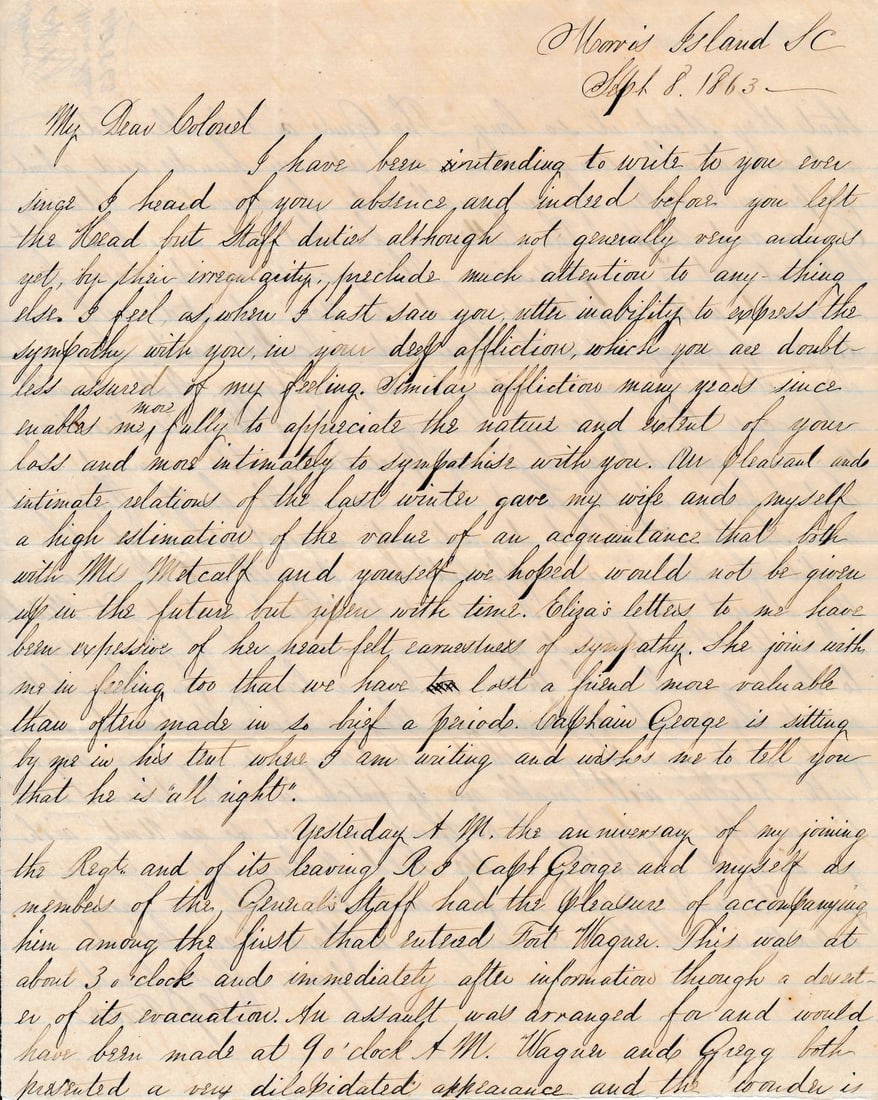 Morris Island SC
Sept 8. 1863
My Dear Colonel
I have been intending to write to you ever
since I heard of your absence, and indeed before you left
the Head but Staff duties although not generally very arduous
yet, by their irregularity, preclude much attention to any-thing
else. I feel, as, when I last saw you, utter inability to express the
sympathy with you, in your deep affliction, which you are doubt-
less assured of my feeling. Similar affliction many years since
enables me, more fully to appreciate the nature and extent of your
loss and more intimately to sympathise with you. Our pleasant and
intimate relations of the last winter gave my wife and myself
a high estimation of the value of an acquaintance that both
with Mrs Metcalf and yourself we hoped would not be given
up in the future but ripen with time. Eliza's letters to me have
been expressive of her heart-felt earnestness of sympathy. She joins with
me in feeling too that we have lost a friend more valuable
than often made in so brief a period. Captain George is sitting
by me in his tent where I am writing and wishes me to tell you
that he is "all right".
Yesterday A M. the anniversary of my joining
the Regt. and of its leaving R I Capt George and myself as
members of the General's Staff had the pleasure of accompanying
him among the first that entered Fort Wagner. This was at
about 3 o'clock and immediately after information through a desert-
er of its evacuation. An assault was arranged for and would
have been made at 9 o'clock A M. Wagner and Gregg both
presented a very dilapidated appearance and the wonder is